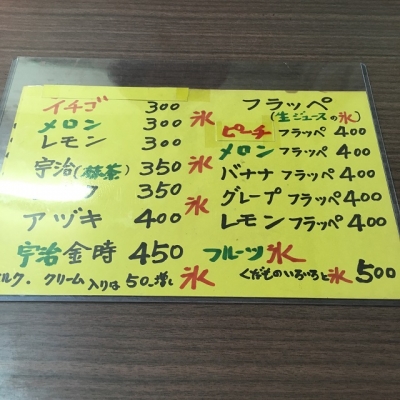 イチゴ 300
メロン 300
レモン 300
氷
宇治(抹茶) 350
350
アヅキ 400
氷
宇治金時 450
ルク. クリーム入りは50増し 氷
フラッペ
(生ジュースの氷)
ピーチフラッペ 400
メロンフラッペ 400
バナナフラッペ 400
グレープフラッペ 400
レモンフラッペ 400
フルーツ氷
くだものいろいろと氷 500